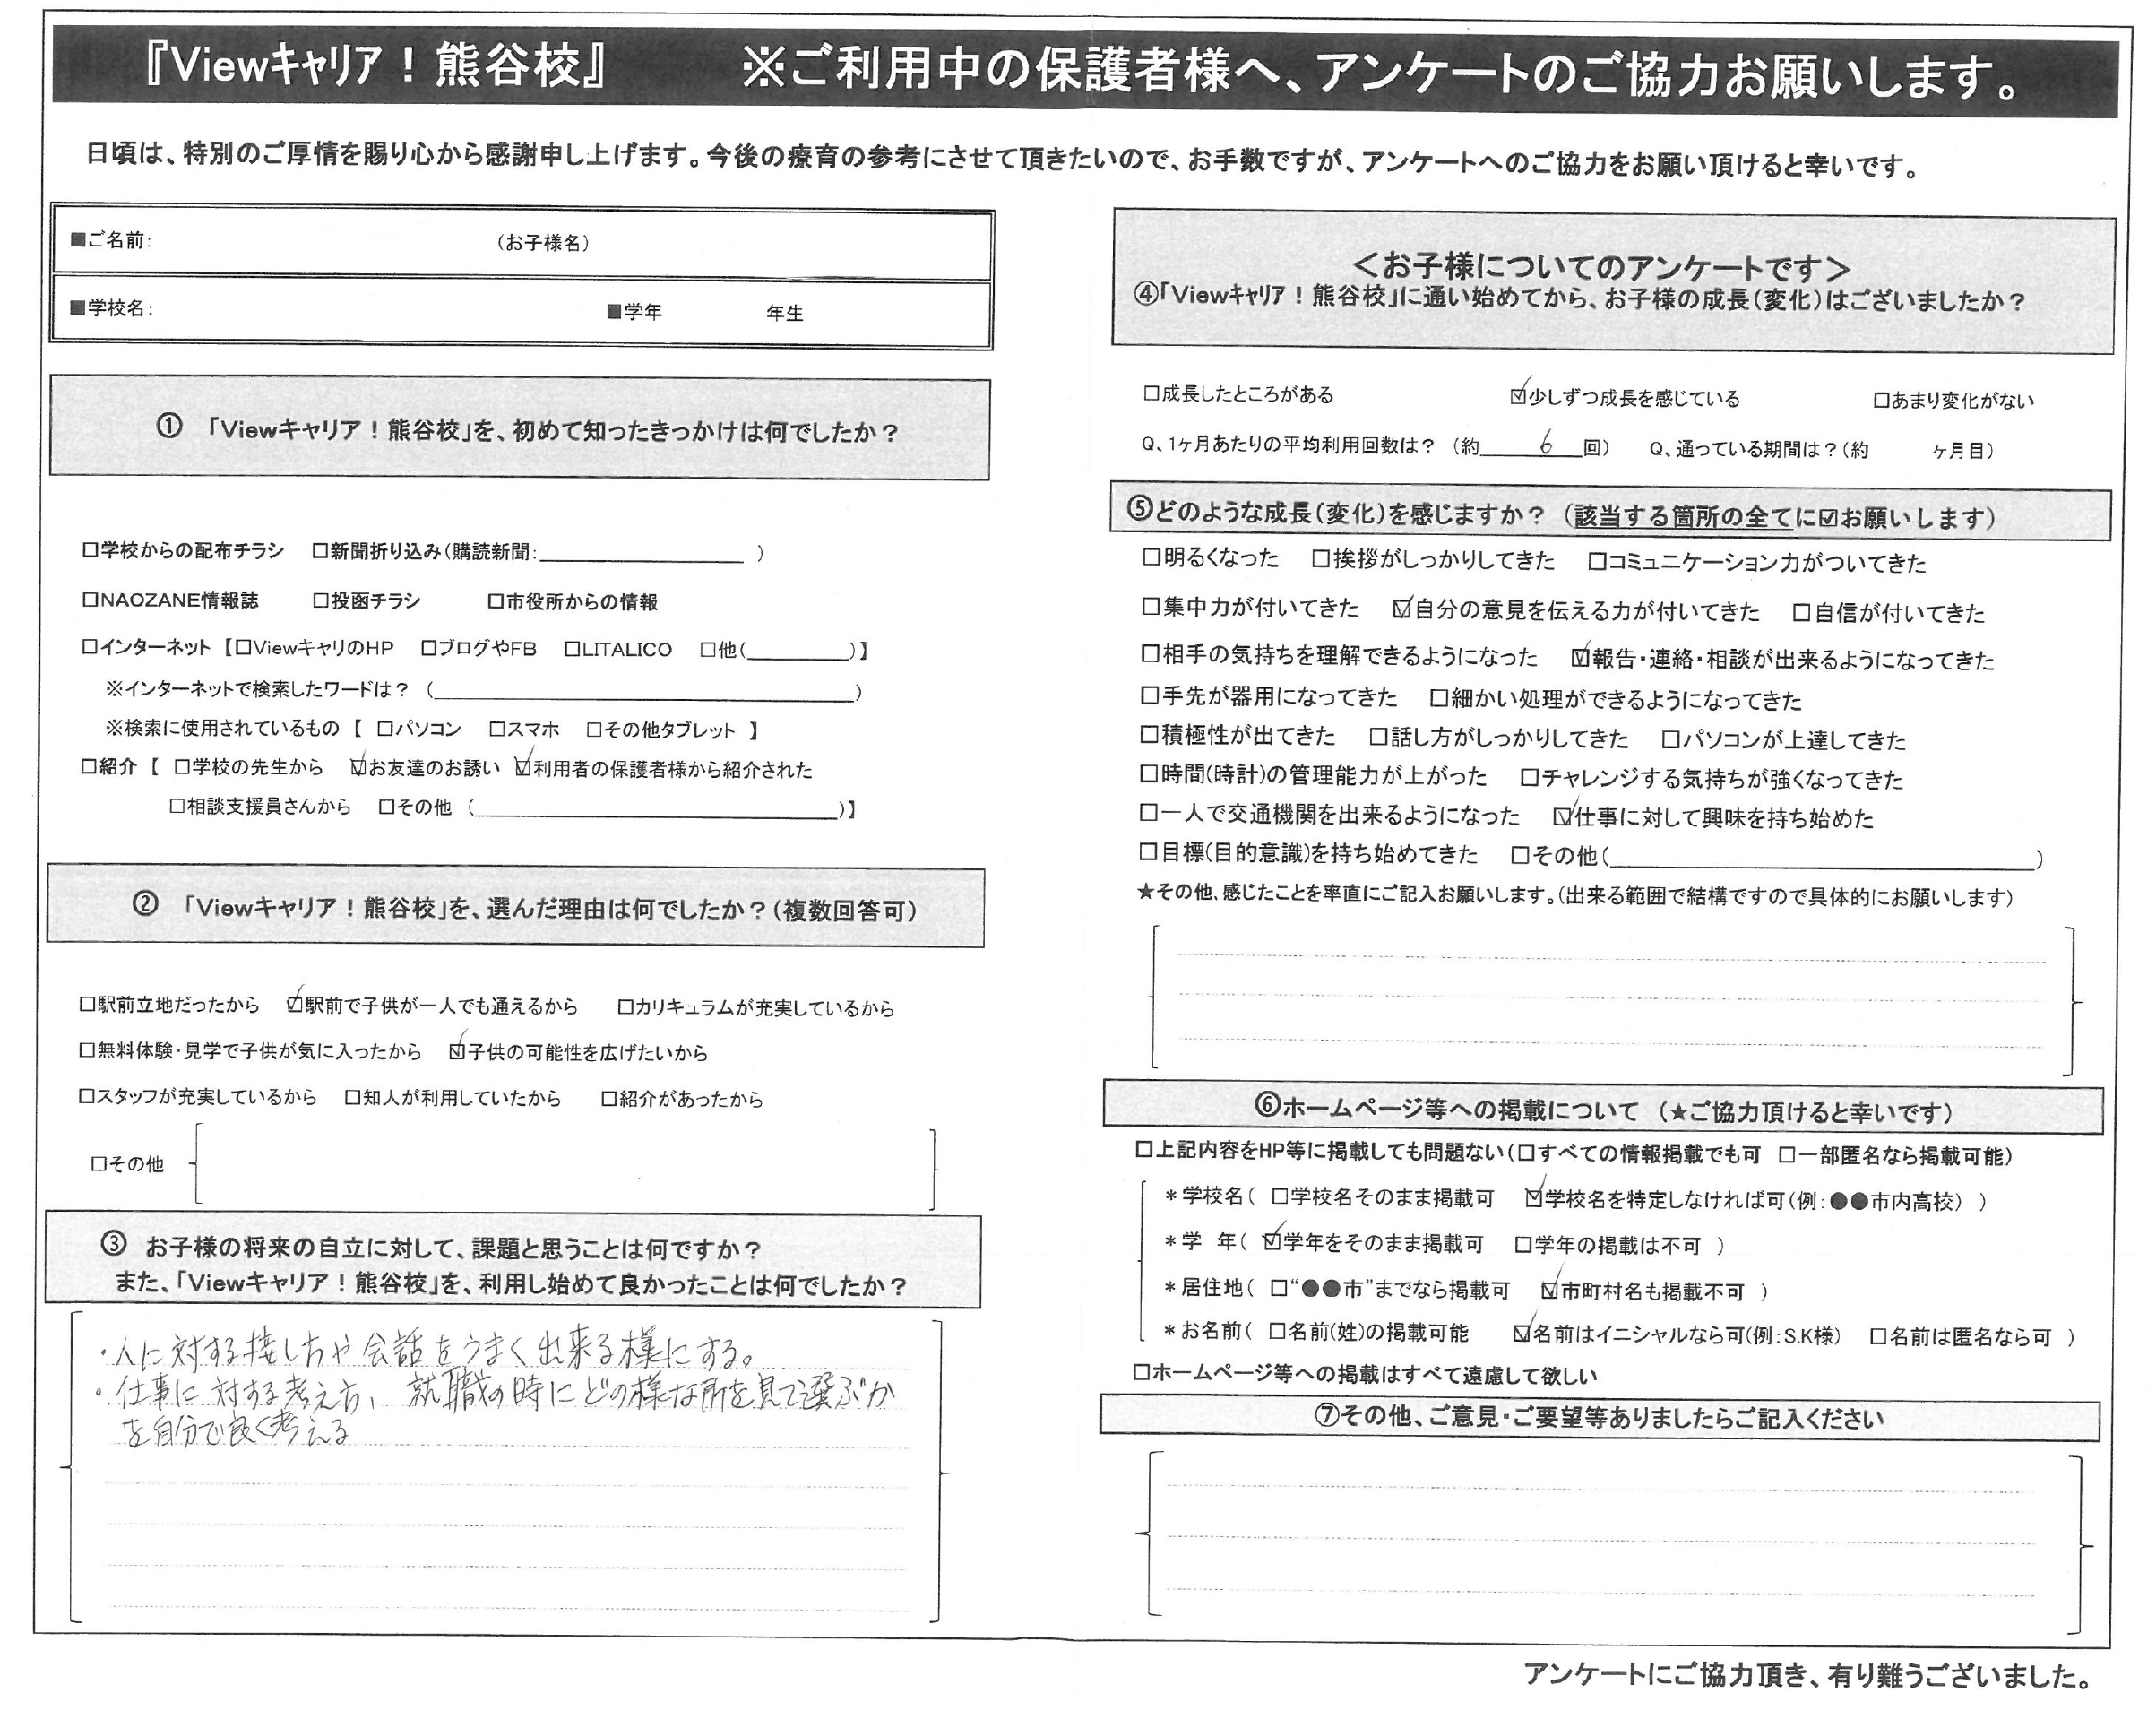 『Viewキャリア！熊谷校』　　※ご利用中の保護者様へ、アンケートのご協力お願いします。
日頃は、特別のご厚情を賜り心から感謝申し上げます。今後の療育の参考にさせて頂きたいので、お手数ですが、アンケートへのご協力をお願い頂けると幸いです。
■ご名前:　　（お子様名）
■学校名:　　■学年　　年生
①　「Viewキャリア！熊谷校」を、初めて知ったきっかけは何でしたか？
□学校からの配布チラシ　□新聞折り込み（購読新聞:＿＿＿＿＿＿）
□NAOZANE情報誌　□投函チラシ　□市役所からの情報
□インターネット【□ViewキャリのHP　□ブログやFB　□LITALICO　□他(＿＿＿＿)】
※インターネットで検索したワードは？（＿＿＿＿＿＿＿＿）
※検索に使用されているもの【　□パソコン　□スマホ　□その他タブレット　】
□紹介【　□学校の先生から　☑お友達のお誘い　☑利用者の保護者様から紹介された
□相談支援員さんから　□その他（＿＿＿＿＿＿＿＿)】
②　「Viewキャリア！熊谷校」を、選んだ理由は何でしたか？（複数回答可）
□駅前立地だったから　☑駅前で子供が一人でも通えるから　□カリキュラムが充実しているから
□無料体験・見学で子供が気に入ったから　☑子供の可能性を広げたいから
□スタッフが充実しているから　□知人が利用していたから　□紹介があったから
□その他
③　お子様の将来の自立に対して、課題と思うことは何ですか？
また、「Viewキャリア！熊谷校」を、利用し始めて良かったことは何でしたか？
・人に対する接し方や会話をうまく出来る様にする。
・仕事に対する考え方、就職の時にどの様な所を見て選ぶか
を自分で良く考える
＜お子様についてのアンケートです＞
④「Viewキャリア！熊谷校」に通い始めてから、お子様の成長（変化）はございましたか？
□成長したところがある　☑少しずつ成長を感じている　□あまり変化がない
Q、1ヶ月あたりの平均利用回数は？（約　6　回）　Q、通っている期間は？（約　　ヶ月目）
⑤どのような成長（変化）を感じますか？（該当する箇所の全てに☑お願いします）
□明るくなった　□挨拶がしっかりしてきた　□コミュニケーション力がついてきた
□集中力が付いてきた　☑自分の意見を伝える力が付いてきた　□自信が付いてきた
□相手の気持ちを理解できるようになった　☑報告・連絡・相談が出来るようになってきた
□手先が器用になってきた　□細かい処理ができるようになってきた
□積極性が出てきた　□話し方がしっかりしてきた　□パソコンが上達してきた
□時間(時計)の管理能力が上がった　□チャレンジする気持ちが強くなってきた
□一人で交通機関を出来るようになった　☑仕事に対して興味を持ち始めた
□目標(目的意識)を持ち始めてきた　□その他(＿＿＿＿＿＿＿＿)
★その他、感じたことを率直にご記入お願いします。（出来る範囲で結構ですので具体的にお願いします）
⑥ホームページ等への掲載について　（★ご協力頂けると幸いです）
□上記内容をHP等に掲載しても問題ない（□すべての情報掲載でも可　□一部匿名なら掲載可能）
＊学校名（　□学校名そのまま掲載可　☑学校名を特定しなければ可（例:●●市内高校）　）
＊学　年（　☑学年をそのまま掲載可　□学年の掲載は不可　）
＊居住地（　□“●●市”までなら掲載可　☑市町村名も掲載不可　）
＊お名前（　□名前(姓)の掲載可能　☑名前はイニシャルなら可(例:S.K様)　□名前は匿名なら可　）
□ホームページ等への掲載はすべて遠慮して欲しい
⑦その他、ご意見・ご要望等ありましたらご記入ください
アンケートにご協力頂き、有り難うございました。